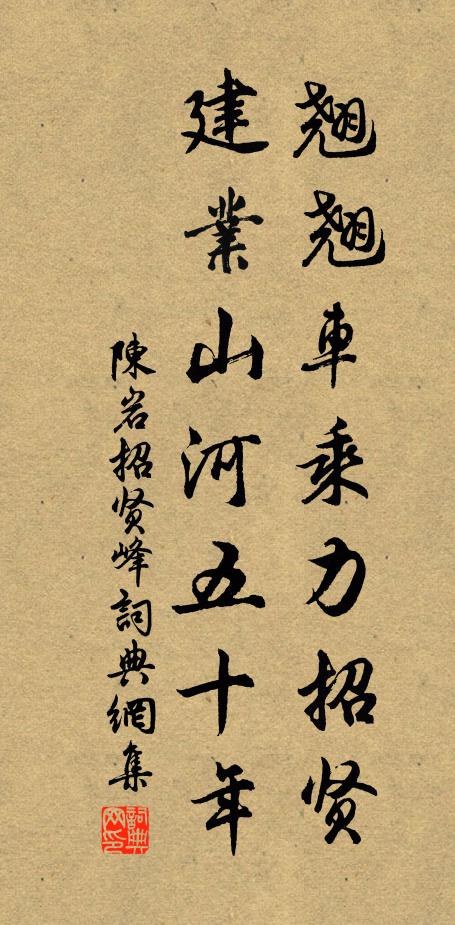 翹翹車乘力招贤
建業山河五十年
陳岩招贤峰詞典網集
詞典网印